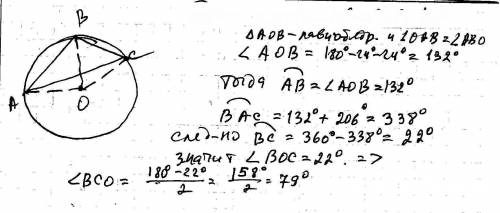 B
C
A
O
ΔAOB - равнобедр. и ∠OAB = ∠ABO
∠AOB = 180° - 24° - 24° = 132°
Тогда AB = ∠AOB = 132°
BAC = 132° + 206° = 338°
след-но BC = 360° - 338° = 22°
значит ∠BOC = 22°. =>
∠BCO = (180° - 22°)/2 = 158°/2 = 79°